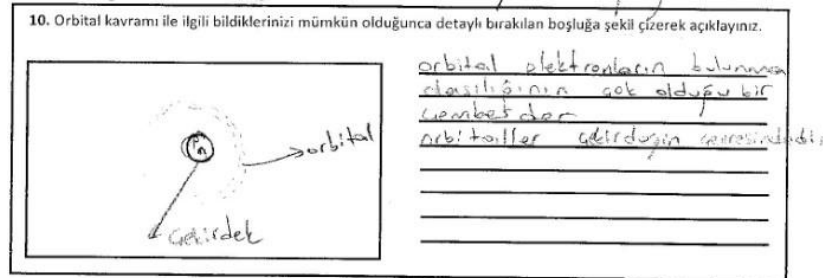 10. Orbital kavramı ile ilgili bildiklerinizi mümkün olduğunca detaylı bırakılan boşluğa şekil çizerek açıklayınız.
orbital elektronların bulunma
olasılığının çok olduğu bir
çemberdir
orbitaller çekirdeğin çevresindedir.
P
n
orbital
çekirdek